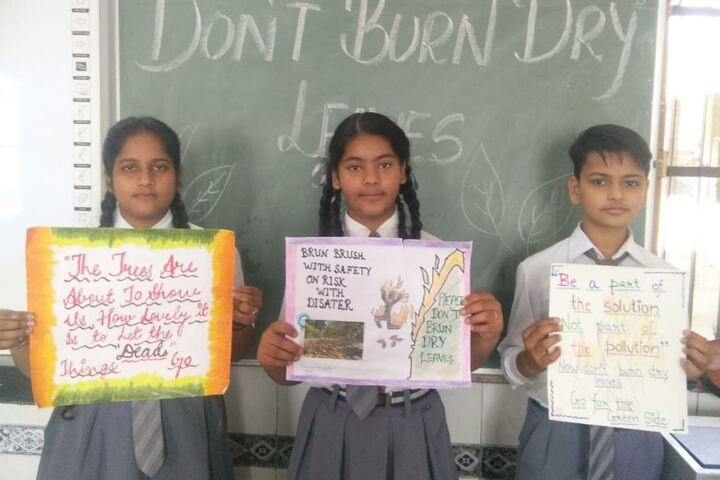 DON'T BURN DRY
LEAVES
"The Trees Are
About To Show
Us How Lovely it
Is to Let the
Dead"
Things Go
BRUN BRUSH
WITH SAFETY
ON RISK
WITH
DISATER
PLEASE
DON'T
BRUN
DRY
LEAVES
"Be a part of
the solution
Not part of
the pollution"
Now don't burn dry
leaves
Go for the
Green Side